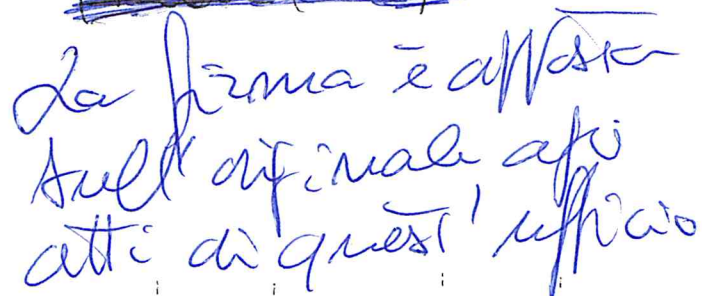 La firma è apposta
sull'originale agli
atti di quest'ufficio